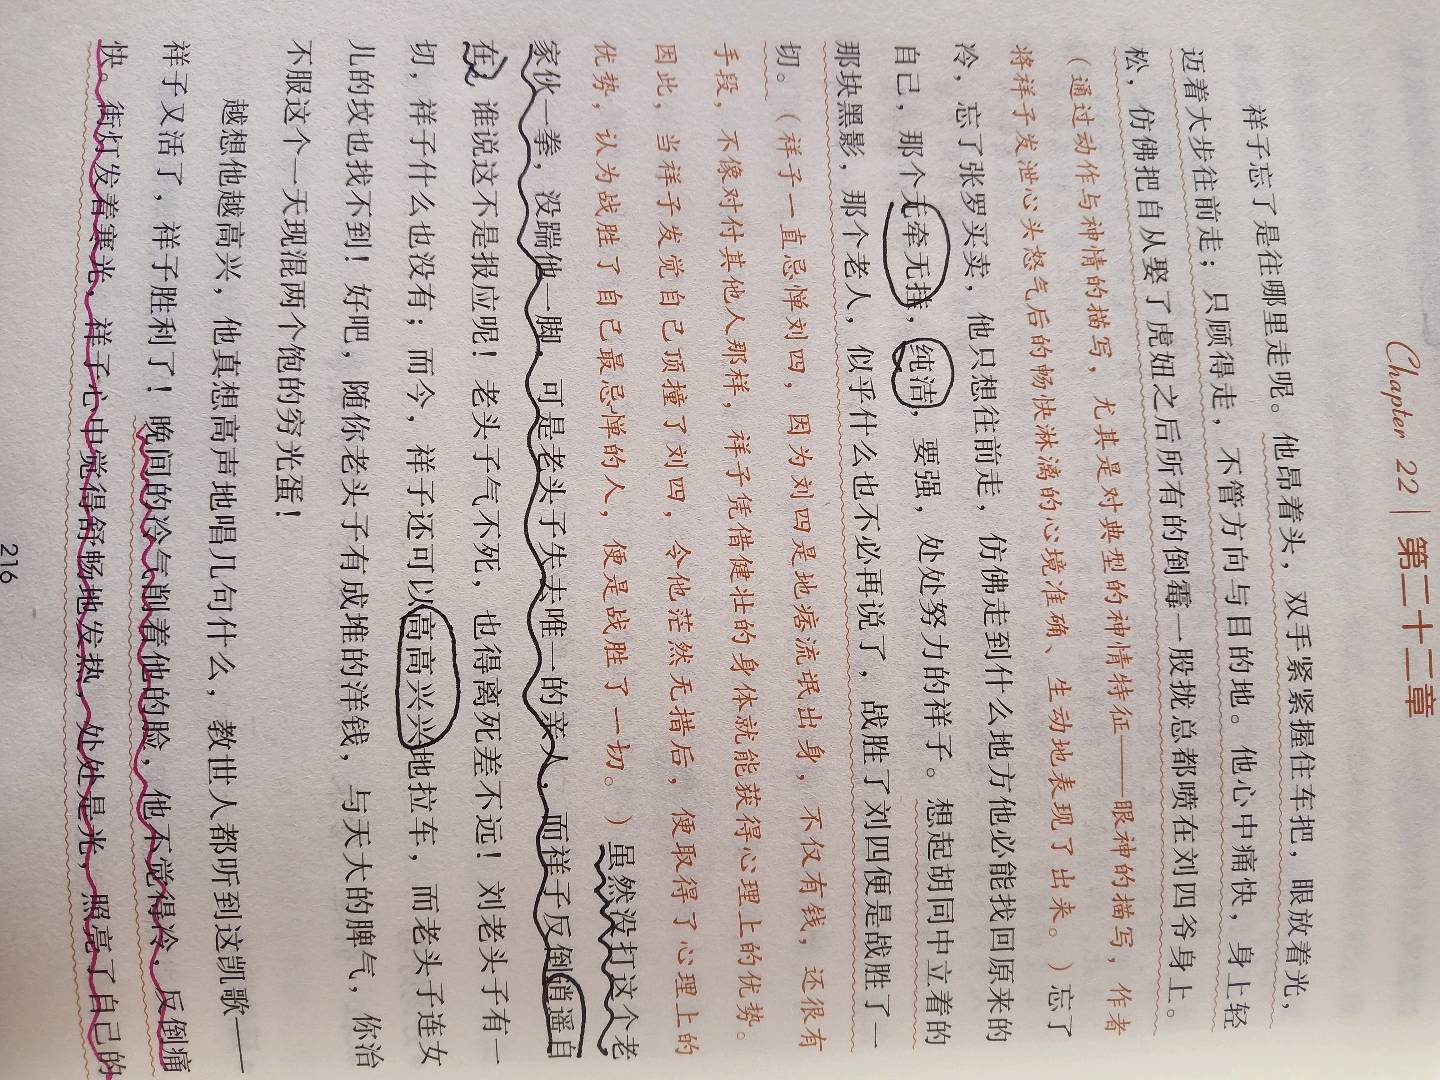 Chapter 22 | 第二十二章
祥子忘了是往哪里走呢。他昂着头，双手紧紧握住车把，眼放着光，
迈着大步往前走；只顾得走，不管方向与目的地。他心中痛快，身上轻
松，仿佛把自从娶了虎妞之后所有的倒霉一股拢总都喷在刘四爷身上。
（通过动作与神情的描写，尤其是对典型的神情特征——眼神的描写，作者
将祥子发泄心头怒气后的畅快淋漓的心境准确、生动地表现了出来。）忘了
冷，忘了张罗买卖，他只想往前走，仿佛走到什么地方他必能找回原来的
自己，那个无牵无挂，纯洁，要强，处处努力的祥子。想起胡同中立着的
那块黑影，那个老人，似乎什么也不必再说了，战胜了刘四便是战胜了一
切。（祥子一直忌惮刘四，因为刘四是地痞流氓出身，不仅有钱，还很有
手段，不像对付其他人那样，祥子凭借健壮的身体就能获得心理上的优势。
因此，当祥子发觉自己顶撞了刘四，令他茫然无措后，便取得了心理上的
优势，认为战胜了自己最忌惮的人，便是战胜了一切。）虽然没打这个老
家伙一拳，没踹他一脚，可是老头子失去唯一的亲人，而祥子反倒逍遥自
在，谁说这不是报应呢！老头子气不死，也得离死差不远！刘老头子有一
切，祥子什么也没有；而今，祥子还可以高高兴兴地拉车，而老头子连女
儿的坟也找不到！好吧，随你老头子有成堆的洋钱，与天大的脾气，你治
不服这个一天现混两个饱的穷光蛋！
越想他越高兴，他真想高声地唱几句什么，教世人都听到这凯歌——
祥子又活了，祥子胜利了！晚间的冷气削着他的脸，他不觉得冷，反倒痛
快。街灯发着寒光，祥子心中觉得舒畅地发热，处处是光，照亮了自己的
216